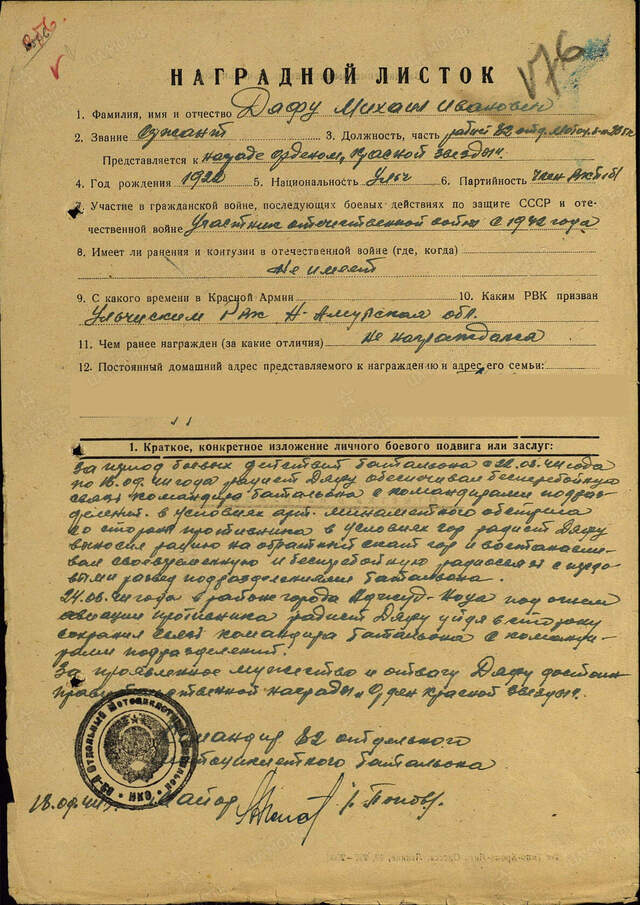 НАГРАДНОЙ ЛИСТОК
1. Фамилия, имя и отчество Дяфу Михаил Иванович
2. Звание Сержант 3. Должность, часть радист 82 отд. Мотоц.
Представляется к награде орденом „Красной звезды“.
4. Год рождения 1922 5. Национальность Ульч 6. Партийность член ВКП(б)
7. Участие в гражданской войне, последующих боевых действиях по защите СССР и оте-
чественной войне Участник отечественной войны с 1942 года
8. Имеет ли ранения и контузии в отечественной войне (где, когда)
Не имеет
9. С какого времени в Красной Армии 10. Каким РВК призван
Ульчиским РВК Н-Амурская обл.
11. Чем ранее награжден (за какие отличия) Не награждался
12. Постоянный домашний адрес представляемого к награждению и адрес его семьи:
1. Краткое, конкретное изложение личного боевого подвига или заслуг:
За период боевых действий батальона с 22.08.44 года
по 18.09.44 года радист Дяфу обеспечивал бесперебойную
связь командира батальона с командирами подраз-
делений. в условиях арт. минаметного обстрела
со стороны противника в условиях гор радист Дяфу
выносил рацию на обратный скат гор и востанавли-
вал своевременную и бесперебойную радиосвязь с
развед подразделениями батальона.
24.08.44 года в районе города под огнем
авиации противника радист Дяфу уйдя в сторону
сохранил связь командира батальона с команди-
рами подразделений.
За проявленное мужество и отвагу Дяфу достоин
правительственной награды „Орден Красной звезды“.
Командир 82 отдельного
мотоциклетного батальона
18.09.44г. Майор /Попов/